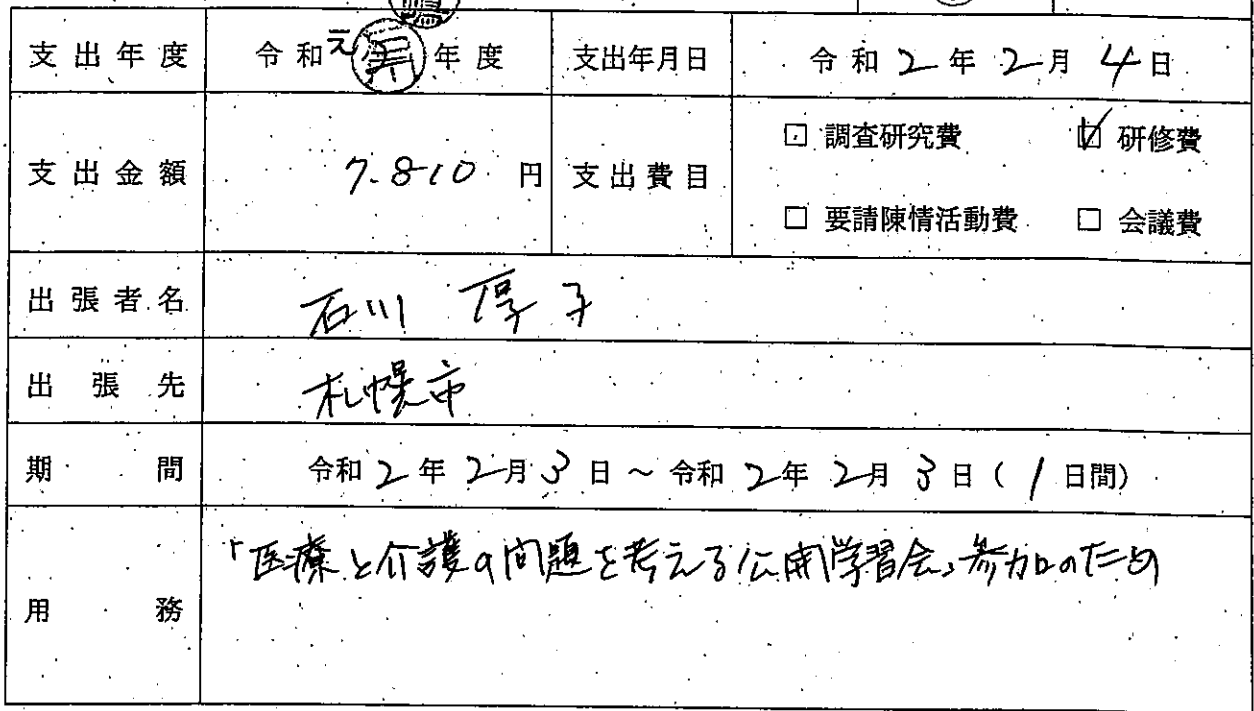 支出年度 令和元年度 支出年月日 令和2年2月4日
支出金額 7.810円 支出費目 □ 調査研究費 ☑ 研修費
□ 要請陳情活動費 □ 会議費
出張者名 石川 厚子
出張先 札幌市
期間 令和2年2月3日～令和2年2月3日(1日間)
用務 「医療と介護の問題を考える公開学習会」参加のため